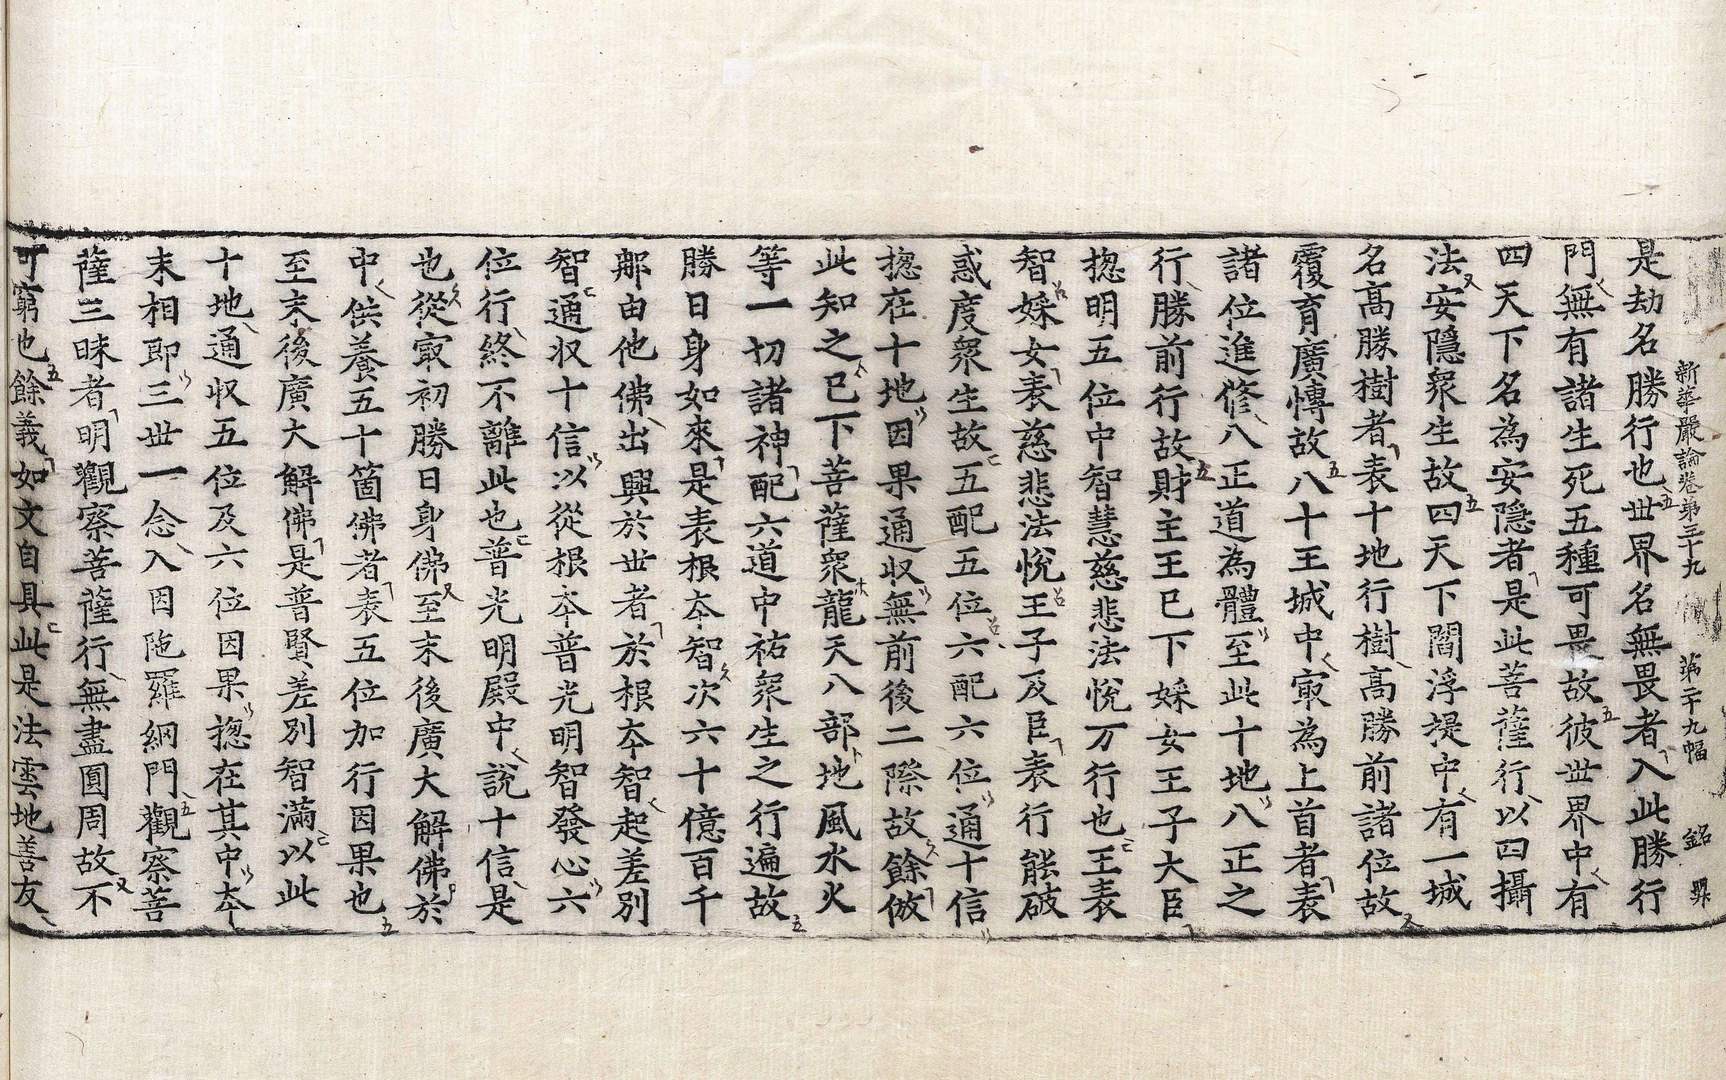 新華嚴論卷第三十九 第二十九幅 銘 昇
是劫名勝行也世界名無畏者入此勝行
門無有諸生死五種可畏故彼世界中有
四天下名為安隱者是此菩薩行以四攝
法安隱眾生故四天下閻浮提中有一城
名高勝樹者表十地行樹高勝前諸位故
覆育廣慱故八十王城中冣為上首者表
諸位進修八正道為體至此十地八正之
行勝前行故財主王已下婇女王子大臣
揔明五位中智慧慈悲法悅万行也王表
智婇女表慈悲法悅王子及臣表行能破
惑度眾生故五配五位六配六位通十信
揔在十地因果通収無前後二際故餘倣
此知之已下菩薩眾龍天八部地風水火
等一切諸神配六道中祐眾生之行遍故
勝日身如來是表根夲智次六十億百千
那由他佛出興於世者於根夲智起差別
智通収十信以從根夲普光明智發心六
位行終不離此也普光明殿中說十信是
也從冣初勝日身佛至末後廣大解佛於
中供養五十箇佛者表五位加行因果也
至末後廣大解佛是普賢差別智滿以此
十地通収五位及六位因果揔在其中夲
末相即三世一念入因陁羅綱門觀察菩
薩三昧者明觀察菩薩行無盡圓周故不
可窮也餘義如文自具此是法雲地善友